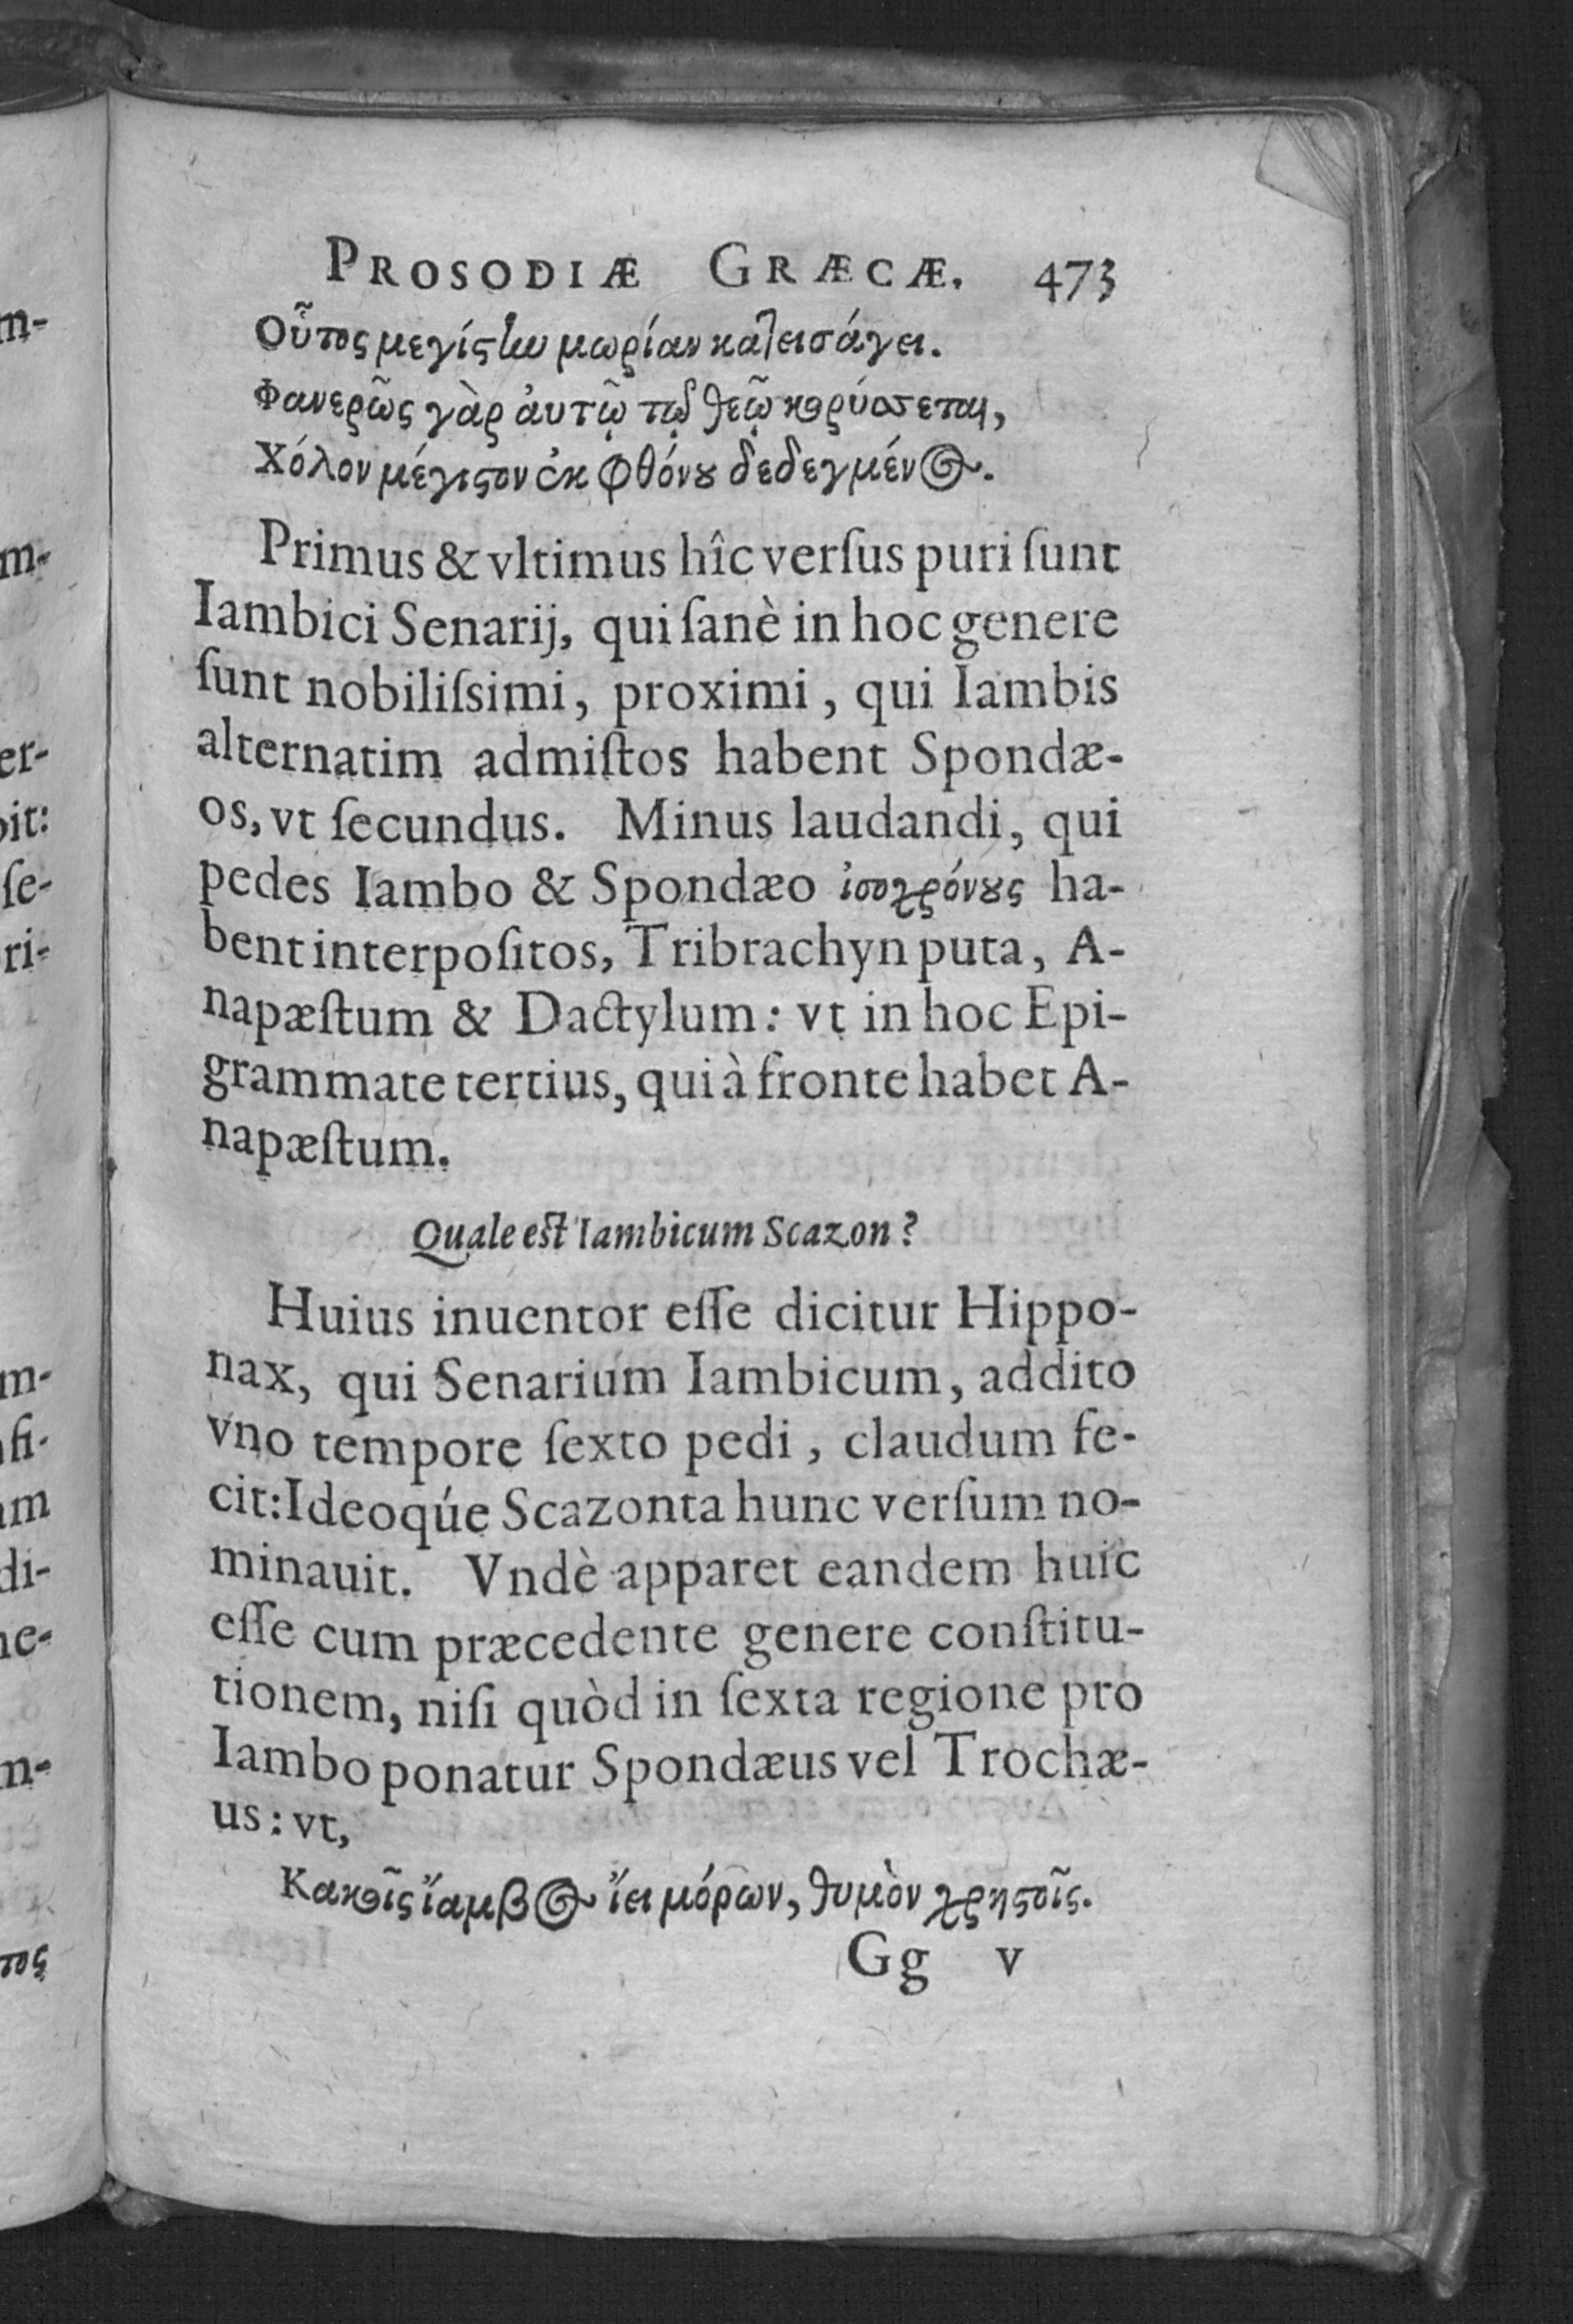 PROSODIÆ GRÆCÆ. 473
Οὗτος μεγίστην μωρίαν κατεισάγει.
Φανερῶς γὰρ ἀυτῷ τῷ θεῷ κορύσσεται,
Χόλον μέγιστον ἐκ φθόνου δεδεγμένος.
Primus & vltimus hîc verſus puri ſunt
Iambici Senarij, qui ſanè in hoc genere
ſunt nobiliſsimi, proximi, qui Iambis
alternatim admiſtos habent Spondæ-
os, vt ſecundus. Minus laudandi, qui
pedes Iambo & Spondæo ἰσοχρόνους ha-
bent interpoſitos, Tribrachyn puta, A-
napæſtum & Dactylum: vt in hoc Epi-
grammate tertius, qui à fronte habet A-
napæſtum.
Quale est Iambicum Scazon?
Huius inuentor eſſe dicitur Hippo-
nax, qui Senarium Iambicum, addito
vno tempore ſexto pedi, claudum fe-
cit: Ideoqúe Scazonta hunc verſum no-
minauit. Vndè apparet eandem huic
eſſe cum præcedente genere conſtitu-
tionem, niſi quòd in ſexta regione pro
Iambo ponatur Spondæus vel Trochæ-
us: vt,
Κακοῖς ἴαμβος ἴει μόρων, θυμὸν χρηστοῖς.
Gg v